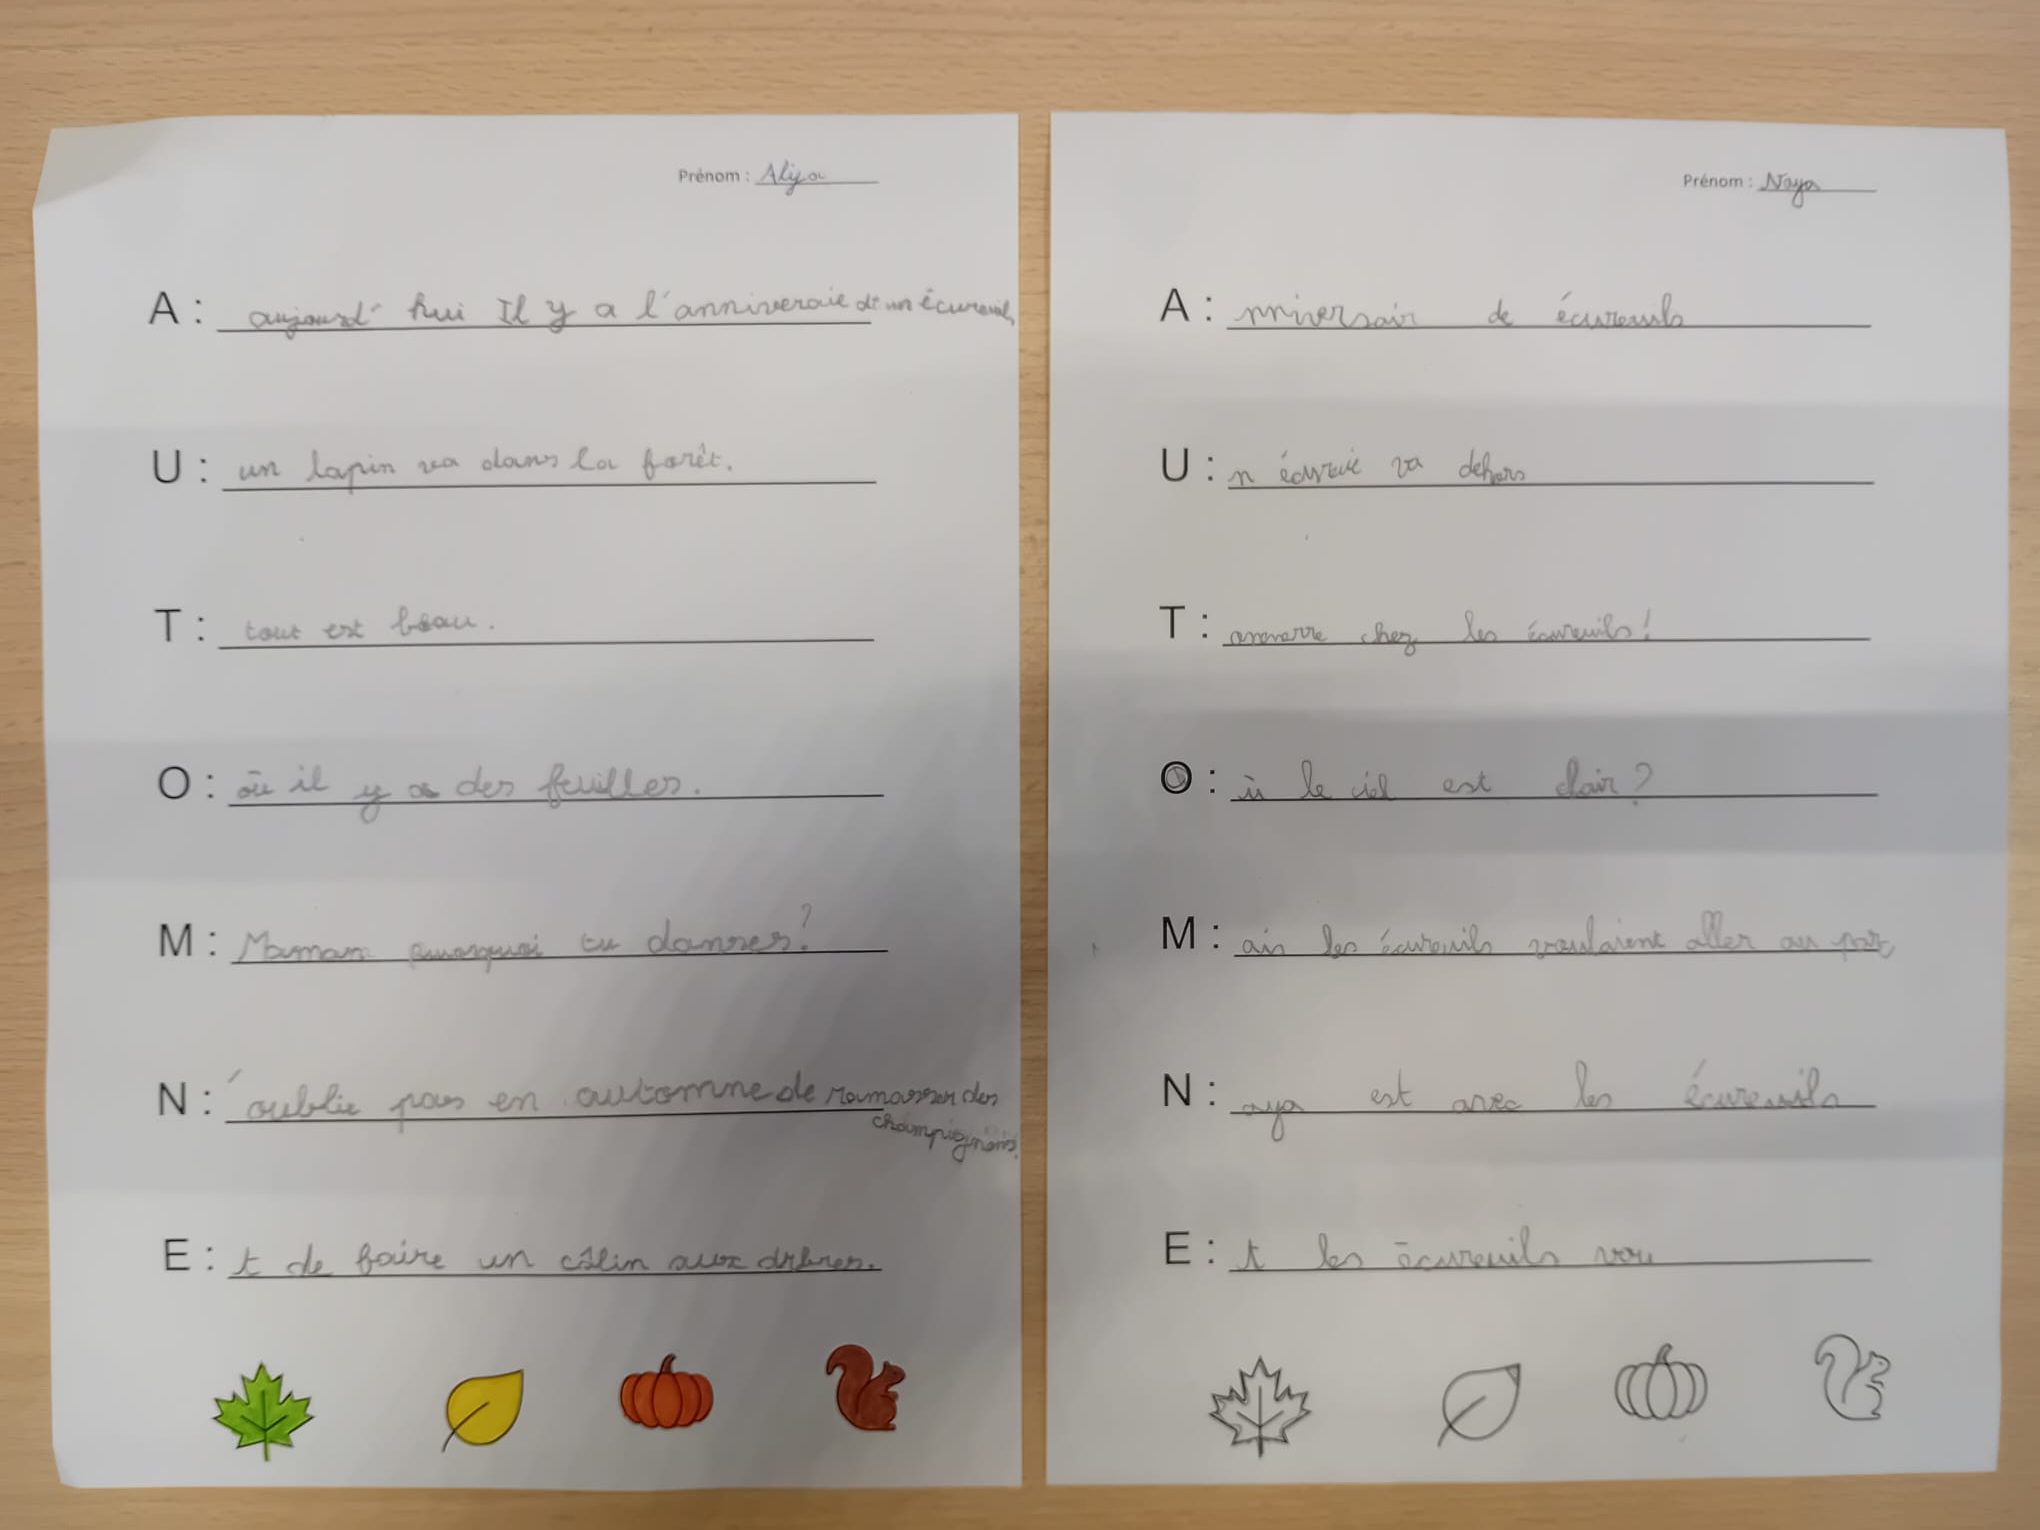 Prénom : Aliya
A : aujourd'hui Il y a l'anniveraie d'un écureuil
U : un lapin va dans la forêt.
T : tout est beau.
O : où il y a des feuilles.
M : Maman pourquoi tu danses?
N : 'oublie pas en automne de ramasser des
champignons.
E : t de faire un câlin aux arbres.
Prénom : Naya
A : nniversair de écureuils
U : n écureie va dehors
T : chez les écureuils!
O : ù le ciel est clair?
M : ais les écureuils voulaient aller au parc
N : aya est avec les écureuils
E : t les écureuils vou